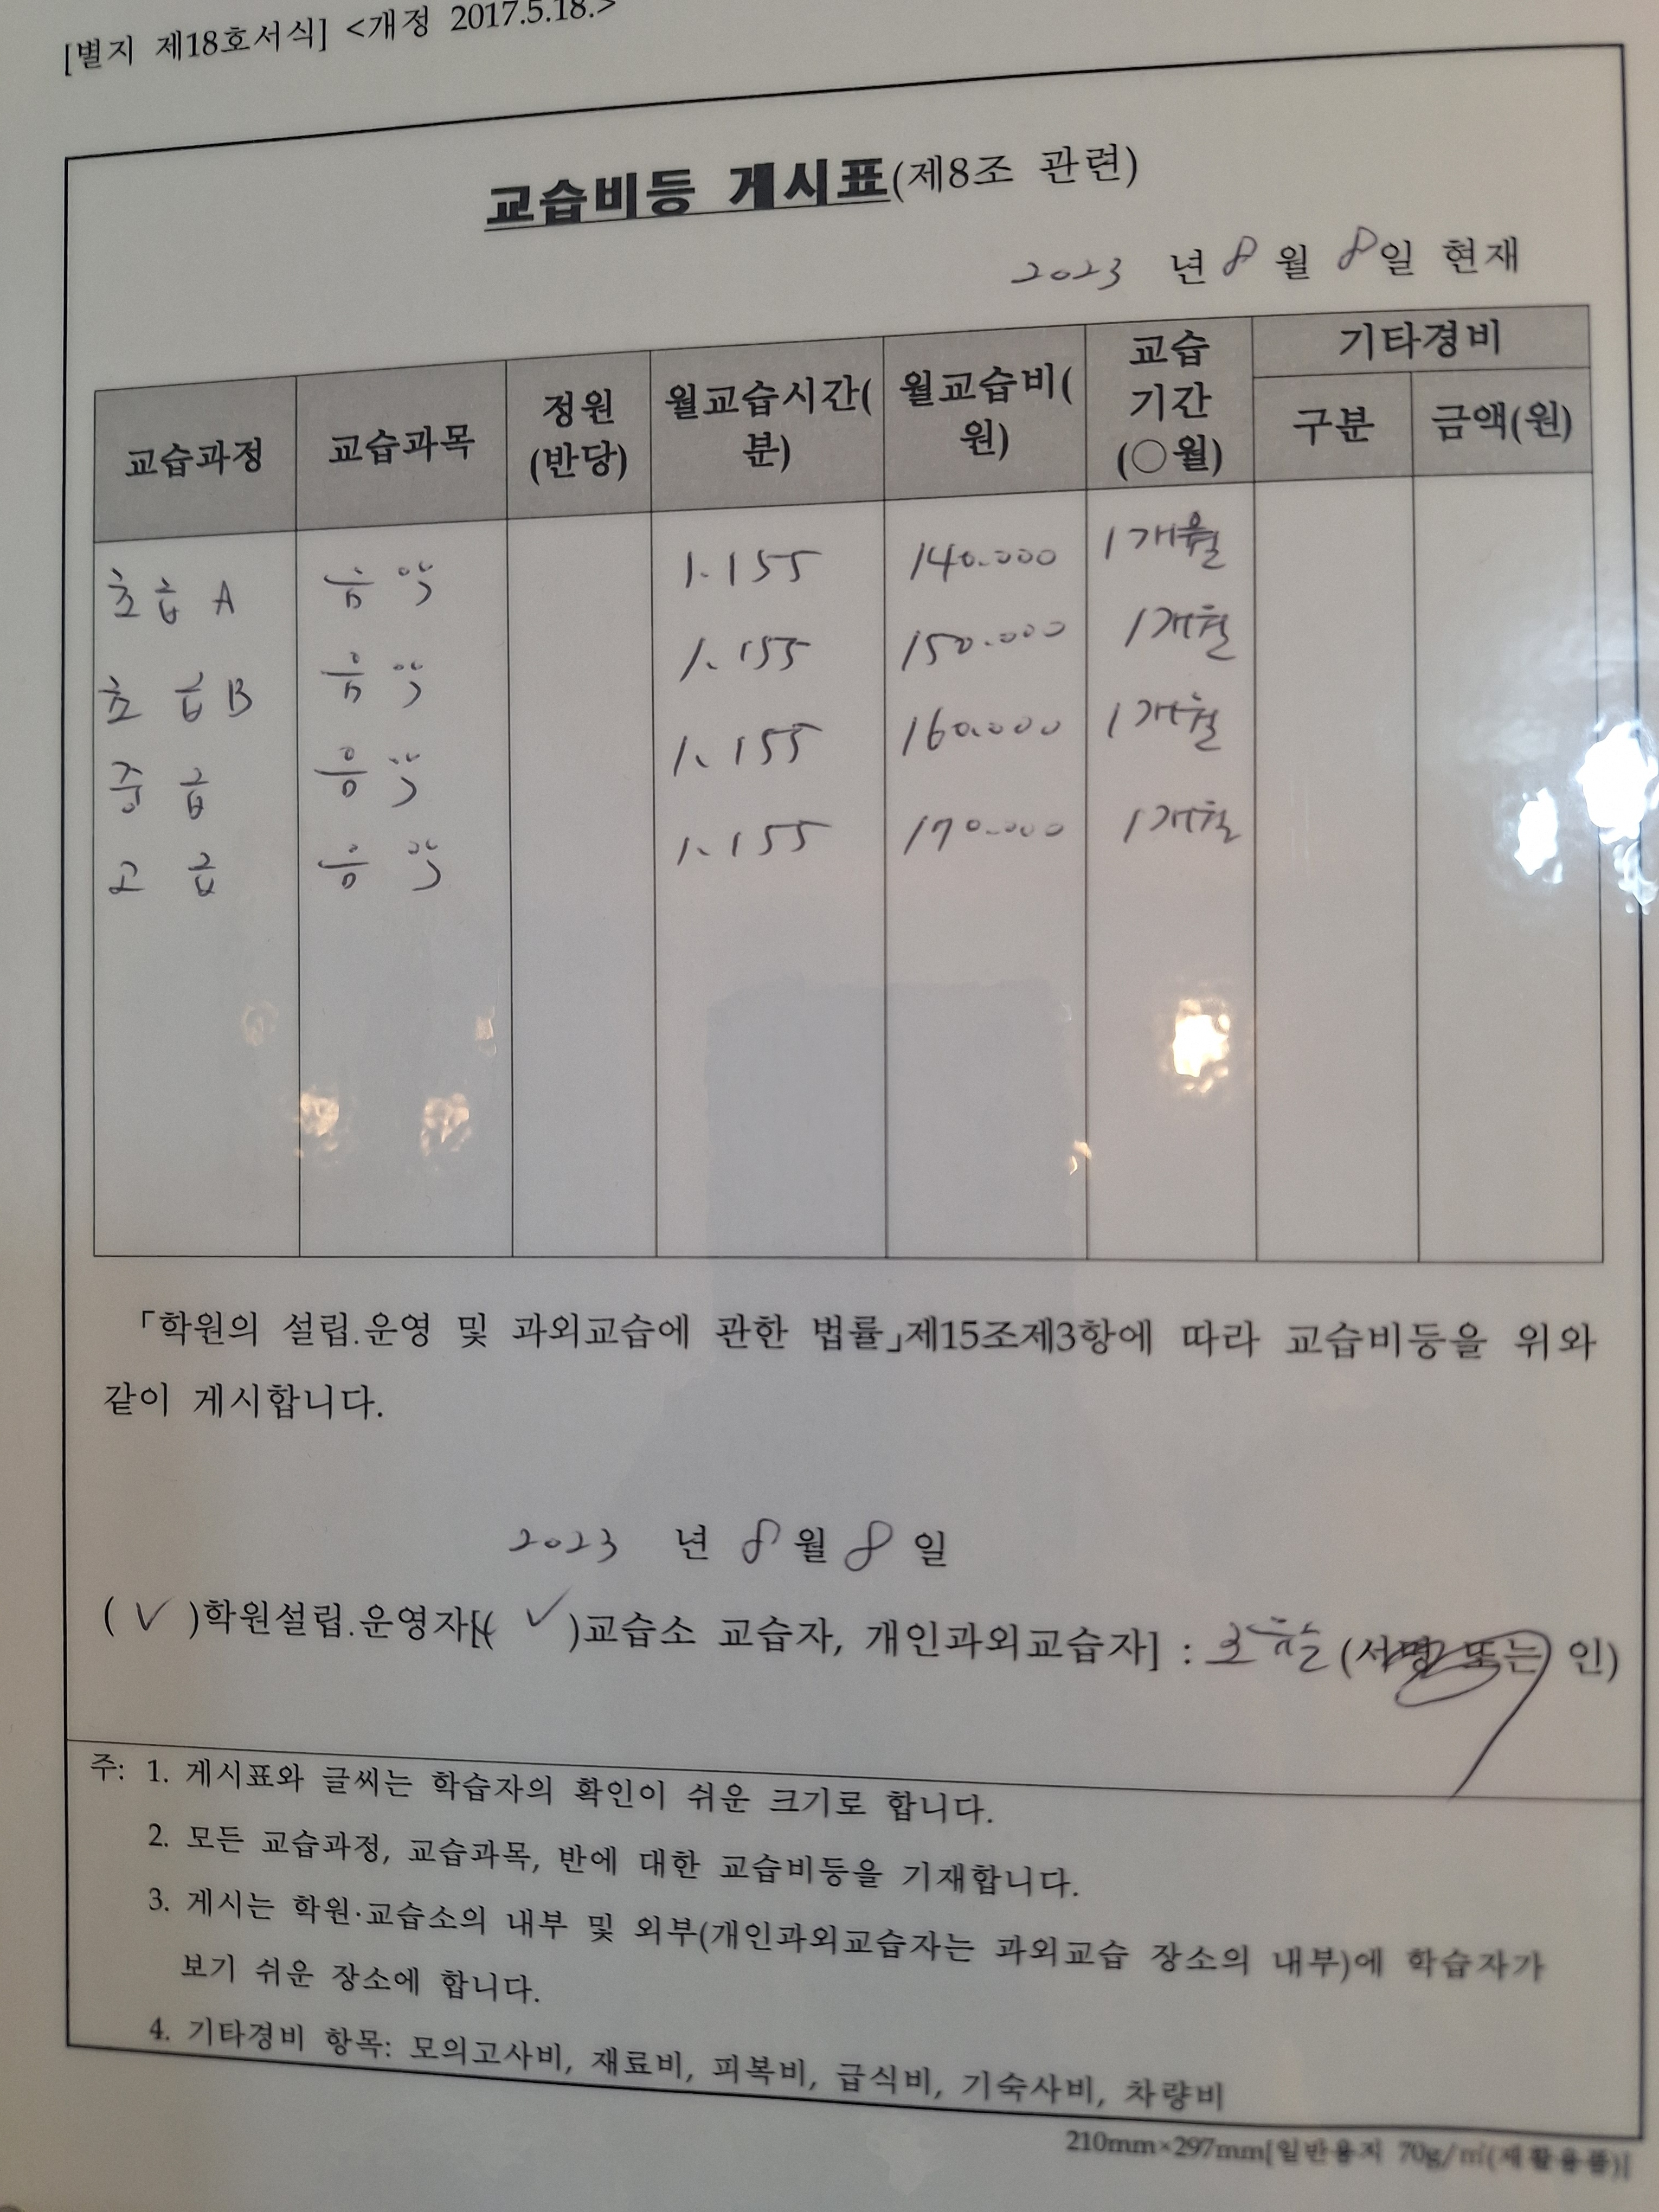 [별지 제18호서식] <개정 2017.5.18.>
교습비등 게시표(제8조 관련)
2023 년 8 월 8일 현재
교습과정 교습과목 정원(반당) 월교습시간(분) 월교습비(원) 교습기간(○월) 기타경비 구분 금액(원)
초급 A 음악 1.155 140.000 1개월
초급B 음악 1.155 150.000 1개월
중급 음악 1.155 160.000 1개월
고급 음악 1.155 170.000 1개월
「학원의 설립.운영 및 과외교습에 관한 법률」제15조제3항에 따라 교습비등을 위와
같이 게시합니다.
2023 년 8월 8일
( ✓ )학원설립.운영자[( ✓ )교습소 교습자, 개인과외교습자] : (서명 또는 인)
주: 1. 게시표와 글씨는 학습자의 확인이 쉬운 크기로 합니다.
2. 모든 교습과정, 교습과목, 반에 대한 교습비등을 기재합니다.
3. 게시는 학원·교습소의 내부 및 외부(개인과외교습자는 과외교습 장소의 내부)에 학습자가
보기 쉬운 장소에 합니다.
4. 기타경비 항목: 모의고사비, 재료비, 피복비, 급식비, 기숙사비, 차량비
210mm×297mm[일반용지 70g/㎡(재활용품)]